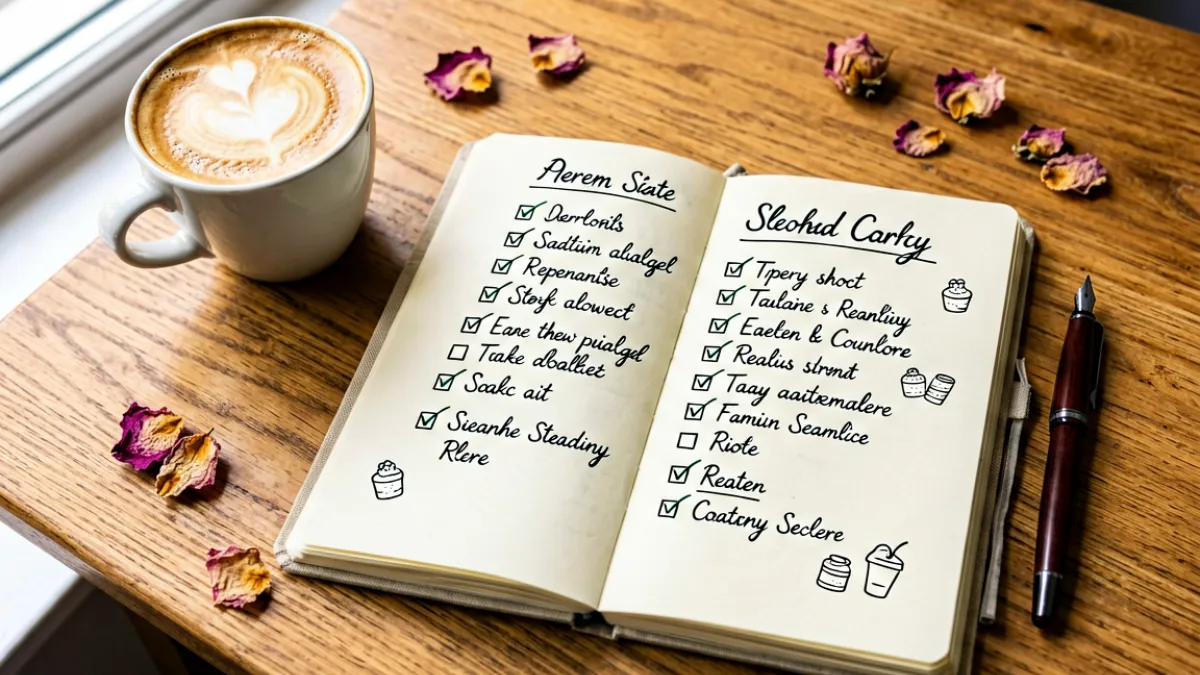 Perem Siate
Derrlorils
Sadtiim alialgel
Repenantse
Stoyk alowect
Eane thew puialgel
Tuake dballet
Soakc ait
Sieanhe Steadiny
Rlere
Sleohud Carfcy
Tipery shoct
Taulaine s Reanliuy
Eaelen & Counlore
Realius strmt
Taay aaitemalere
Famiin Seamlice
Riote
Reaten
Coatcny Seclere